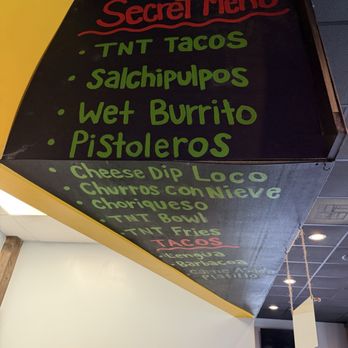 Secret Menu
• TNT TACOS
• Salchipulpos
• Wet Burrito
• Pistoleros
• Cheese Dip Loco
• Churros con Nieve
• Choriqueso
• TNT Bowl
• TNT Fries
TACOS
• Lengua
• Barbacoa